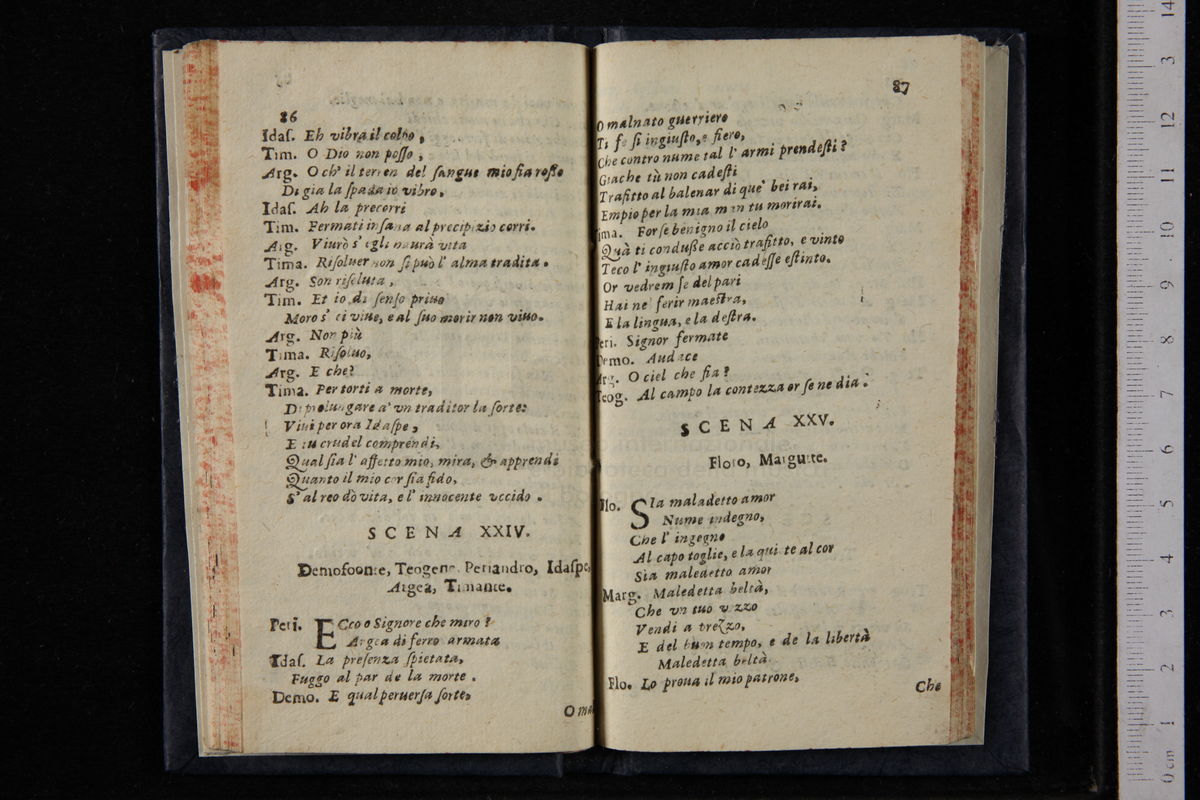 86
Idas. Eh vibra il colpo,
Tim. O Dio non posso,
Arg. O ch' il terren del sangue mio sia rosso
Di gia la spada io vibro,
Idas. Ah la precorri
Tim. Fermati insana al precipizio corri.
Arg. Viurò s' egli haurà vita
Tima. Risoluer non si può l' alma tradita.
Arg. Son risoluta,
Tim. Et io di senso priuo
Moro s' ei viue, e al suo morir non viuo.
Arg. Non più
Tima. Risoluo,
Arg. E che?
Tima. Per torti a morte,
Di prolungare a' vn traditor la sorte:
Viui per ora Idaspe,
E tu crudel comprendi,
Qual sia l' affetto mio, mira, & apprendi
Quanto il mio cor sia fido,
S' al reo dò vita, e l' innocente vccido.
SCENA XXIV.
Demofoonte, Teogene, Periandro, Idaspe,
Argea, Timante.
Peri. ECco o Signore che miro?
Argea di ferro armata
Idas. La presenza spietata,
Fuggo al par de la morte.
Demo. E qual peruersa sorte,
O mal
87
O malnato guerriero
Ti fe sì ingiusto, e fiero,
Che contro nume tal l' armi prendesti?
Giache tù non cadesti
Trafitto al balenar di que' bei rai,
Empio per la mia man tu morirai.
Tima. Forse benigno il cielo
Quà ti condusse acciò trafitto, e vinto
Teco l' ingiusto amor cadesse estinto.
Or vedrem se del pari
Hai nel ferir maestra,
E la lingua, e la destra.
Peri. Signor fermate
Demo. Audace
Arg. O ciel che fia?
Teog. Al campo la contezza or se ne dia.
SCENA XXV.
Floro, Margutte.
Flo. SIa maladetto amor
Nume indegno,
Che l' ingegno
Al capo toglie, e la quiete al cor
Sia maledetto amor
Marg. Maledetta beltà,
Che vn tuo vezzo
Vendi a prezzo,
E del buon tempo, e de la libertà
Maledetta beltà
Flo. Lo proua il mio patrone,
Che